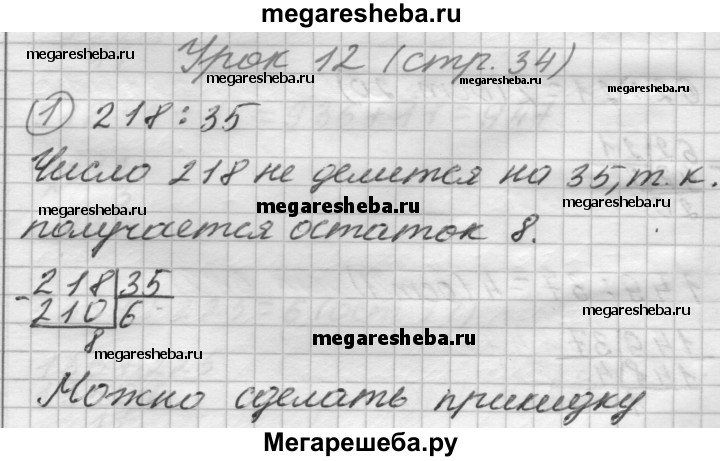 megaresheba.ru
Урок 12 (стр. 34)
megaresheba.ru
megaresheba.ru
megaresheba.ru
① 218 : 35
Число 218 не делится на 35, т. к.
megaresheba.ru
megaresheba.ru
megaresheba.ru
получается остаток 8.
- 218 | 35
210 | 6
megaresheba.ru
8
megaresheba.ru
megaresheba.ru
Можно сделать прикидку
Мегарешеба.ру